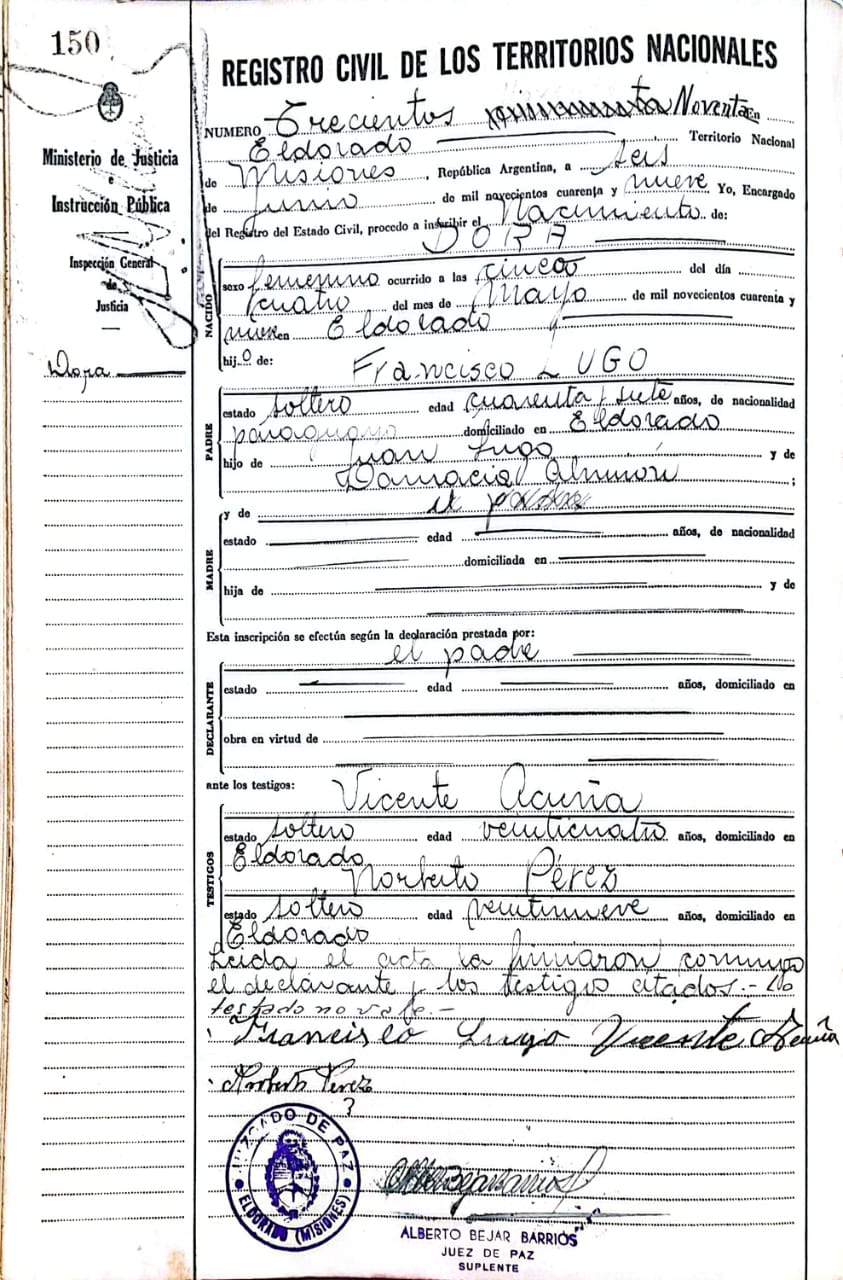 150
Ministerio de Justicia
e
Instrucción Pública
Inspección General
de
Justicia
Dora
REGISTRO CIVIL DE LOS TERRITORIOS NACIONALES
NUMERO Trecientos Noventa En
Eldorado Territorio Nacional
de Misiones, República Argentina, a seis
de Junio de mil novecientos cuarenta y nueve Yo, Encargado
del Registro del Estado Civil, procedo a inscribir el Nacimiento de:
DORA
NACIDO
sexo femenino ocurrido a las cinco del día
cuatro del mes de Mayo de mil novecientos cuarenta y
nueve en Eldorado
hijo de:
Francisco LUGO
PADRE
estado soltero edad cuarenta y siete años, de nacionalidad
paraguayo domiciliado en Eldorado
hijo de Juan Lugo y de
Damacia ;
MADRE
y de el padre
estado edad años, de nacionalidad
domiciliada en
hija de y de
Esta inscripción se efectúa según la declaración prestada por:
el padre
DECLARANTE
estado edad años, domiciliado en
obra en virtud de
ante los testigos:
Vicente Acuña
TESTIGOS
estado soltero edad veinticuatro años, domiciliado en
Eldorado
Norberto Pérez
estado soltero edad veintinueve años, domiciliado en
Eldorado
Leida el acta la firmaron conmigo
el declarante y los testigos citados.- Lo
testado no vale.-
Francisco Lugo Vicente Acuña
Norberto Perez
JUZGADO DE PAZ
ELDORADO (MISIONES)
ALBERTO BEJAR BARRIOS
JUEZ DE PAZ
SUPLENTE